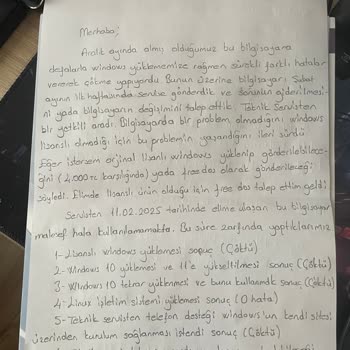 Merhaba;
Aralık ayında almış olduğumuz bu bilgisayara
defalarca windows yüklememize rağmen sürekli farklı hatalar
vererek çökme yapıyordu. Bunun üzerine bilgisayarı Şubat
ayının ilk haftasında servise gönderdik ve sorunun giderilmesi-
ni yada bilgisayarın değişimini talep ettik. Teknik Servisten
bir yetkili aradı. Bilgisayarda bir problem olmadığını windows
lisanslı olmadığı için bu problemin yaşandığını ileri sürdü
Eğer istersem orjinal lisanlı windows yüklenip gönderilebilece-
ğini (2.000 TL karşılığında) yada free dos olarak gönderileceği
söyledi. Elimde lisanslı ürün olduğu için free dos talep ettim geldi
Servisten 11.02.2025 tarihinde elime ulaşan bu bilgisayar
malesef hala kullanılamamakta. Bu süre zarfında yaptıklarımız
1- Lisanslı windows yüklemesi sonuç (Çöktü)
2- Windows 10 yüklemesi ve 11'e yükseltilmesi sonuç (Çöktü)
3- Windows 10 tekrar yüklenmesi ve bunu kullanmak sonuç (Çöktü)
4- Linux işletim sistemi yüklemesi sonuç (0 hata)
5- Teknik servisten telefon desteği windows'un kendi sitesi
üzerinden kurulum sağlanması istendi sonuç (Çöktü)